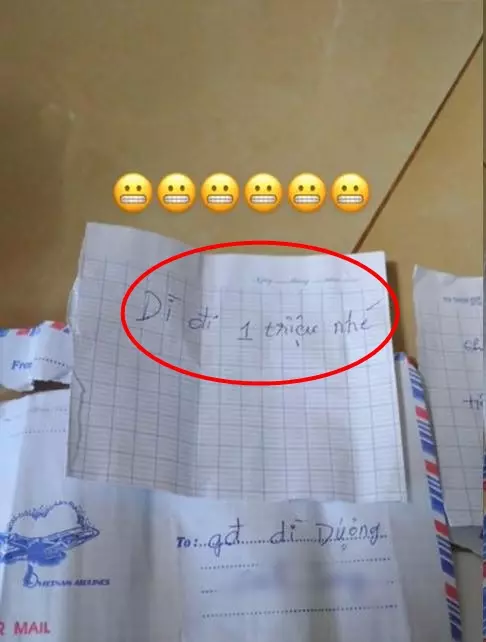 Dì đi 1 triệu nhé
From
To: gđ dì Dượng
VIETNAM AIRLINES
R MAIL